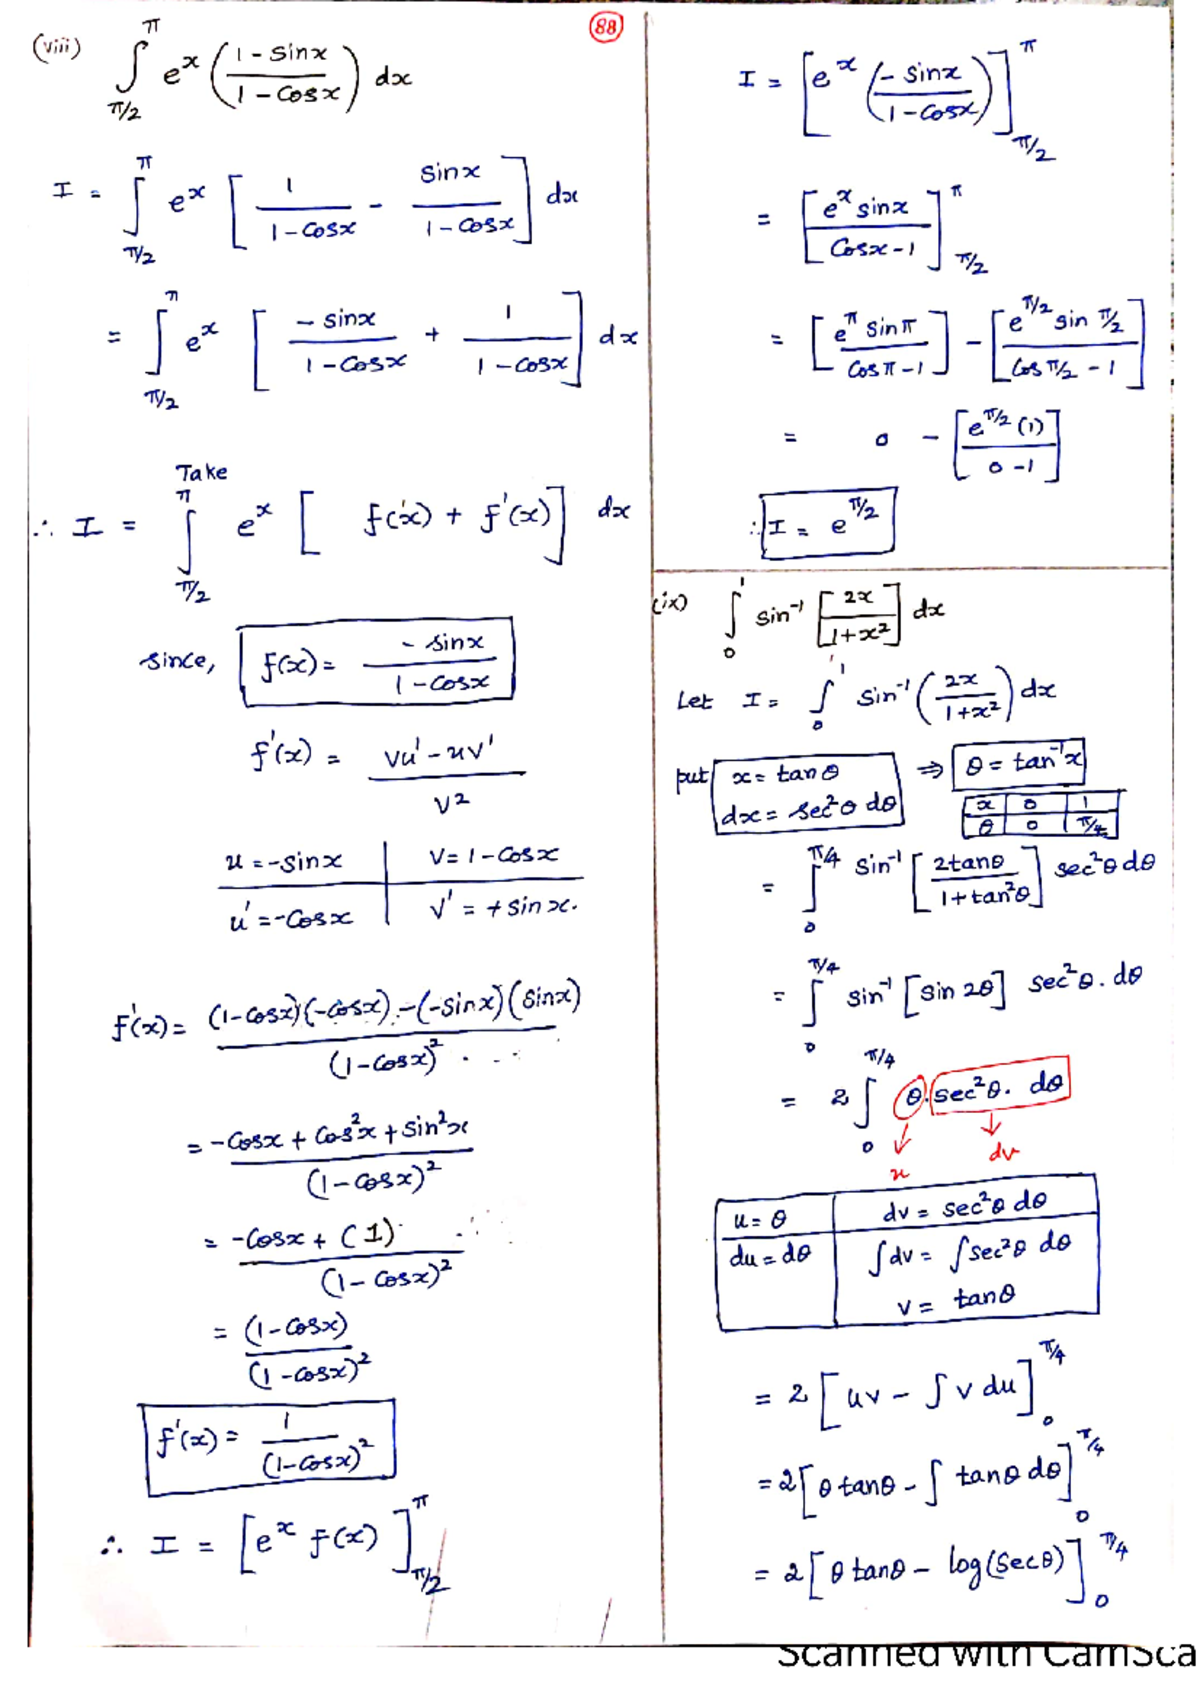 88
(viii) ∫_{π/2}^{π} e^x ((1 - sinx)/(1 - Cosx)) dx
I = ∫_{π/2}^{π} e^x [1/(1 - Cosx) - sinx/(1 - Cosx)] dx
= ∫_{π/2}^{π} e^x [-sinx/(1 - Cosx) + 1/(1 - Cosx)] dx
Take
∴ I = ∫_{π/2}^{π} e^x [f(x) + f'(x)] dx
since, f(x) = -sinx/(1 - Cosx)
f'(x) = (vu' - uv')/v²
u = -sinx | v = 1 - Cosx
u' = -Cosx | v' = +sinx.
f'(x) = ((1-Cosx)(-Cosx) - (-sinx)(sinx))/(1-Cosx)²
= (-Cosx + Cos²x + sin²x)/(1-Cosx)²
= (-Cosx + (1))/(1-Cosx)²
= (1-Cosx)/(1-Cosx)²
f'(x) = 1/(1-Cosx)²
∴ I = [e^x f(x)]_{π/2}^{π}
I = [e^x (-sinx/(1-Cosx))]_{π/2}^{π}
= [e^x sinx/(Cosx-1)]_{π/2}^{π}
= [e^π sinπ/(Cosπ-1)] - [e^{π/2} sin π/2/(Cos π/2 - 1)]
= 0 - [e^{π/2} (1)/(0-1)]
∴ I = e^{π/2}
(ix) ∫_0^1 sin⁻¹ [2x/(1+x²)] dx
Let I = ∫_0^1 sin⁻¹ (2x/(1+x²)) dx
put x = tanθ ⇒ θ = tan⁻¹x
dx = sec²θ dθ
x | 0 | 1
θ | 0 | π/4
= ∫_0^{π/4} sin⁻¹ [2tanθ/(1+tan²θ)] sec²θ dθ
= ∫_0^{π/4} sin⁻¹ [sin 2θ] sec²θ. dθ
= 2 ∫_0^{π/4} θ. sec²θ. dθ
u dv
u = θ | dv = sec²θ dθ
du = dθ | ∫dv = ∫sec²θ dθ
v = tanθ
= 2 [uv - ∫v du]_0^{π/4}
= 2 [θ tanθ - ∫ tanθ dθ]_0^{π/4}
= 2 [θ tanθ - log(secθ)]_0^{π/4}
Scanned with CamSca